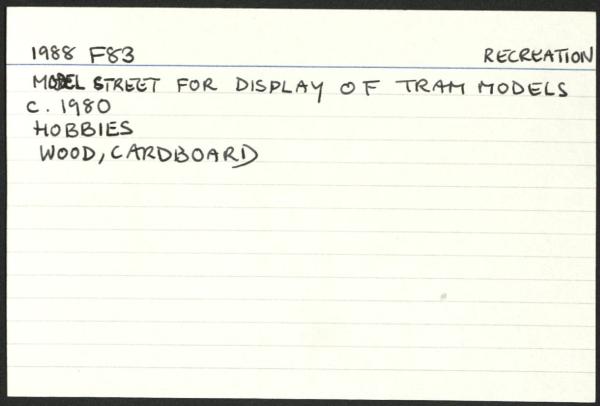 1988 F83 RECREATION
MODEL STREET FOR DISPLAY OF TRAM MODELS
c. 1980
HOBBIES
WOOD, CARDBOARD